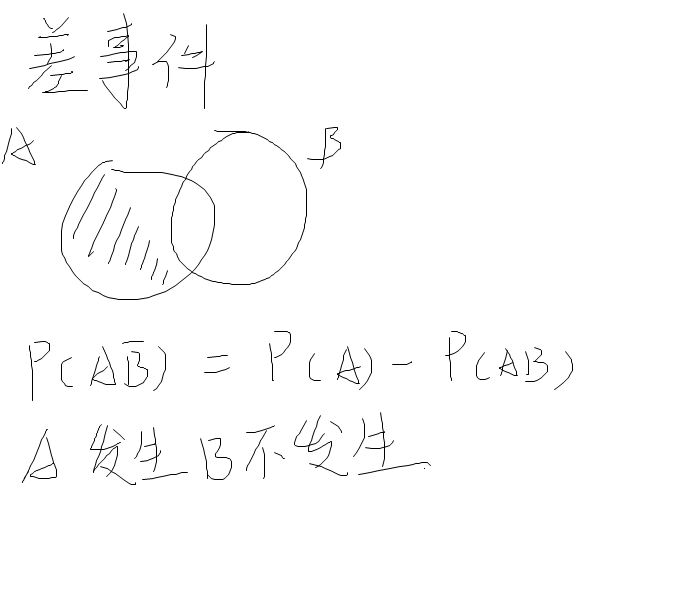 差事件
A B
P(AB̅) = P(A) - P(AB)
A 发生 B 不发生